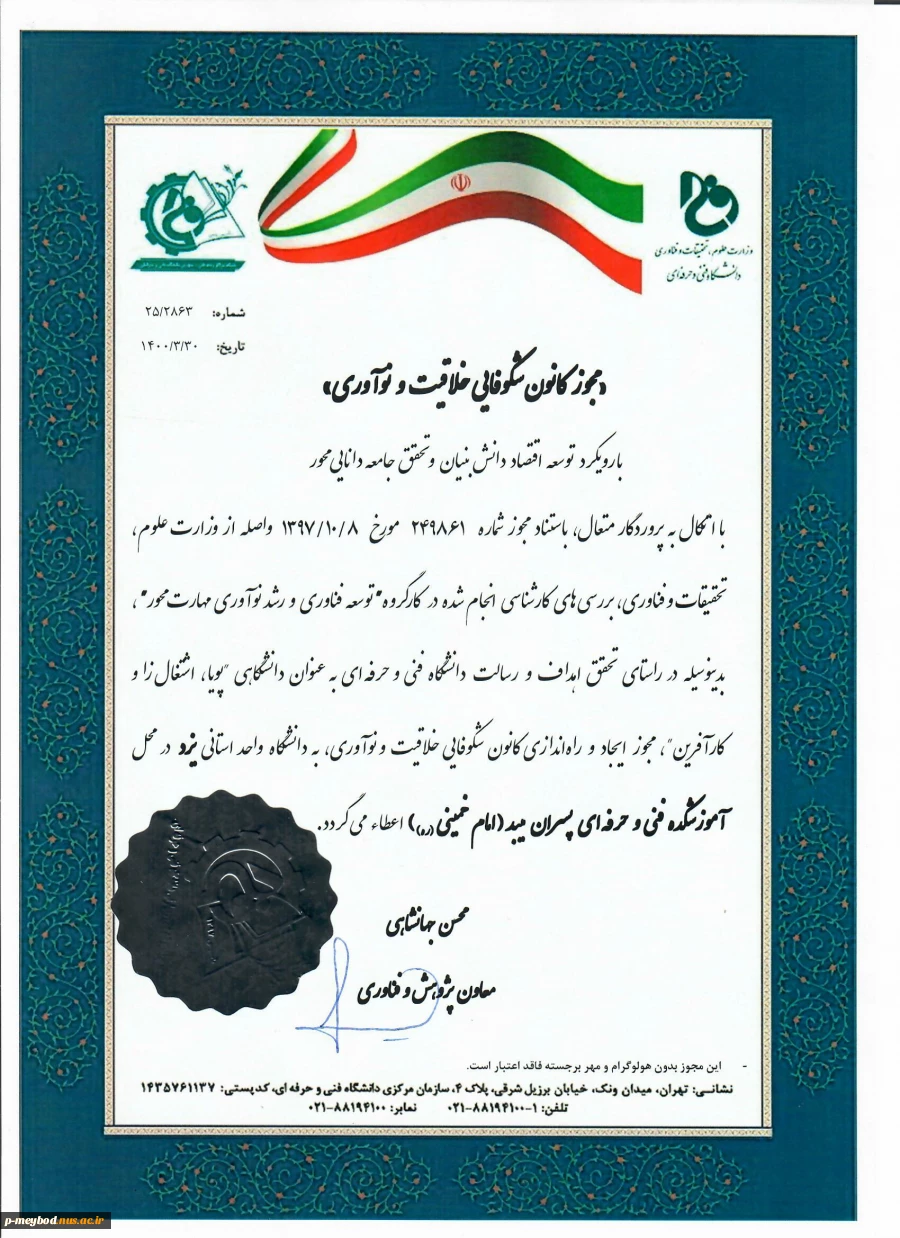 وزارت علوم، تحقیقات و فناوری
دانشگاه فنی و حرفه‌ای
شماره: ۲۵/۲۸۶۳
تاریخ: ۱۴۰۰/۳/۳۰
«مجوز کانون شکوفایی خلاقیت و نوآوری»
با رویکرد توسعه اقتصاد دانش بنیان و تحقق جامعه دانایی محور
با اتکال به پروردگار متعال، باستناد مجوز شماره ۲۴۹۸۶۱ مورخ ۱۳۹۷/۱۰/۸ واصله از وزارت علوم،
تحقیقات و فناوری، بررسی های کارشناسی انجام شده در کارگروه "توسعه فناوری و رشد نوآوری مهارت محور"،
بدینوسیله در راستای تحقق اهداف و رسالت دانشگاه فنی و حرفه ای به عنوان دانشگاهی "پویا، اشتغال زا و
کارآفرین"، مجوز ایجاد و راه‌اندازی کانون شکوفایی خلاقیت و نوآوری، به دانشگاه واحد استانی یزد در محل
آموزشکده فنی و حرفه ای پسران میبد (امام خمینی (ره)) اعطاء می گردد.
محسن جهانشاهی
معاون پژوهش و فناوری
- این مجوز بدون هولوگرام و مهر برجسته فاقد اعتبار است.
نشانی: تهران، میدان ونک، خیابان برزیل شرقی، پلاک ۴، سازمان مرکزی دانشگاه فنی و حرفه ای، کدپستی: ۱۴۳۵۷۶۱۱۳۷
تلفن: ۱-۸۸۱۹۴۱۰۰-۰۲۱ نمابر: ۸۸۱۹۴۱۰۰-۰۲۱
p-meybod.nus.ac.ir